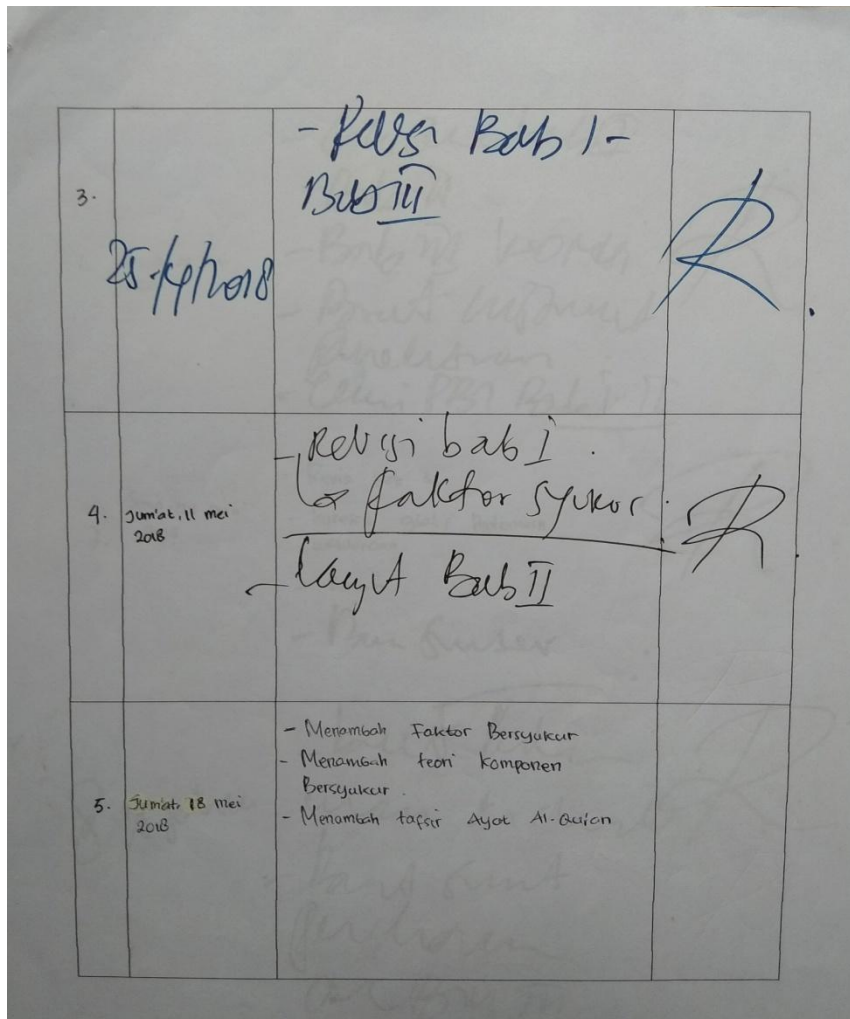 3.
25/4/2018
- Revisi Bab I -
Bab III
4.
Jum'at, 11 mei
2018
- Revisi bab I.
faktor syukur.
- lanjut Bab II
5.
Jum'at, 18 mei
2018
- Menambah Faktor Bersyukur
- Menambah teori komponen
Bersyukur.
- Menambah tafsir Ayat Al-Qur'an